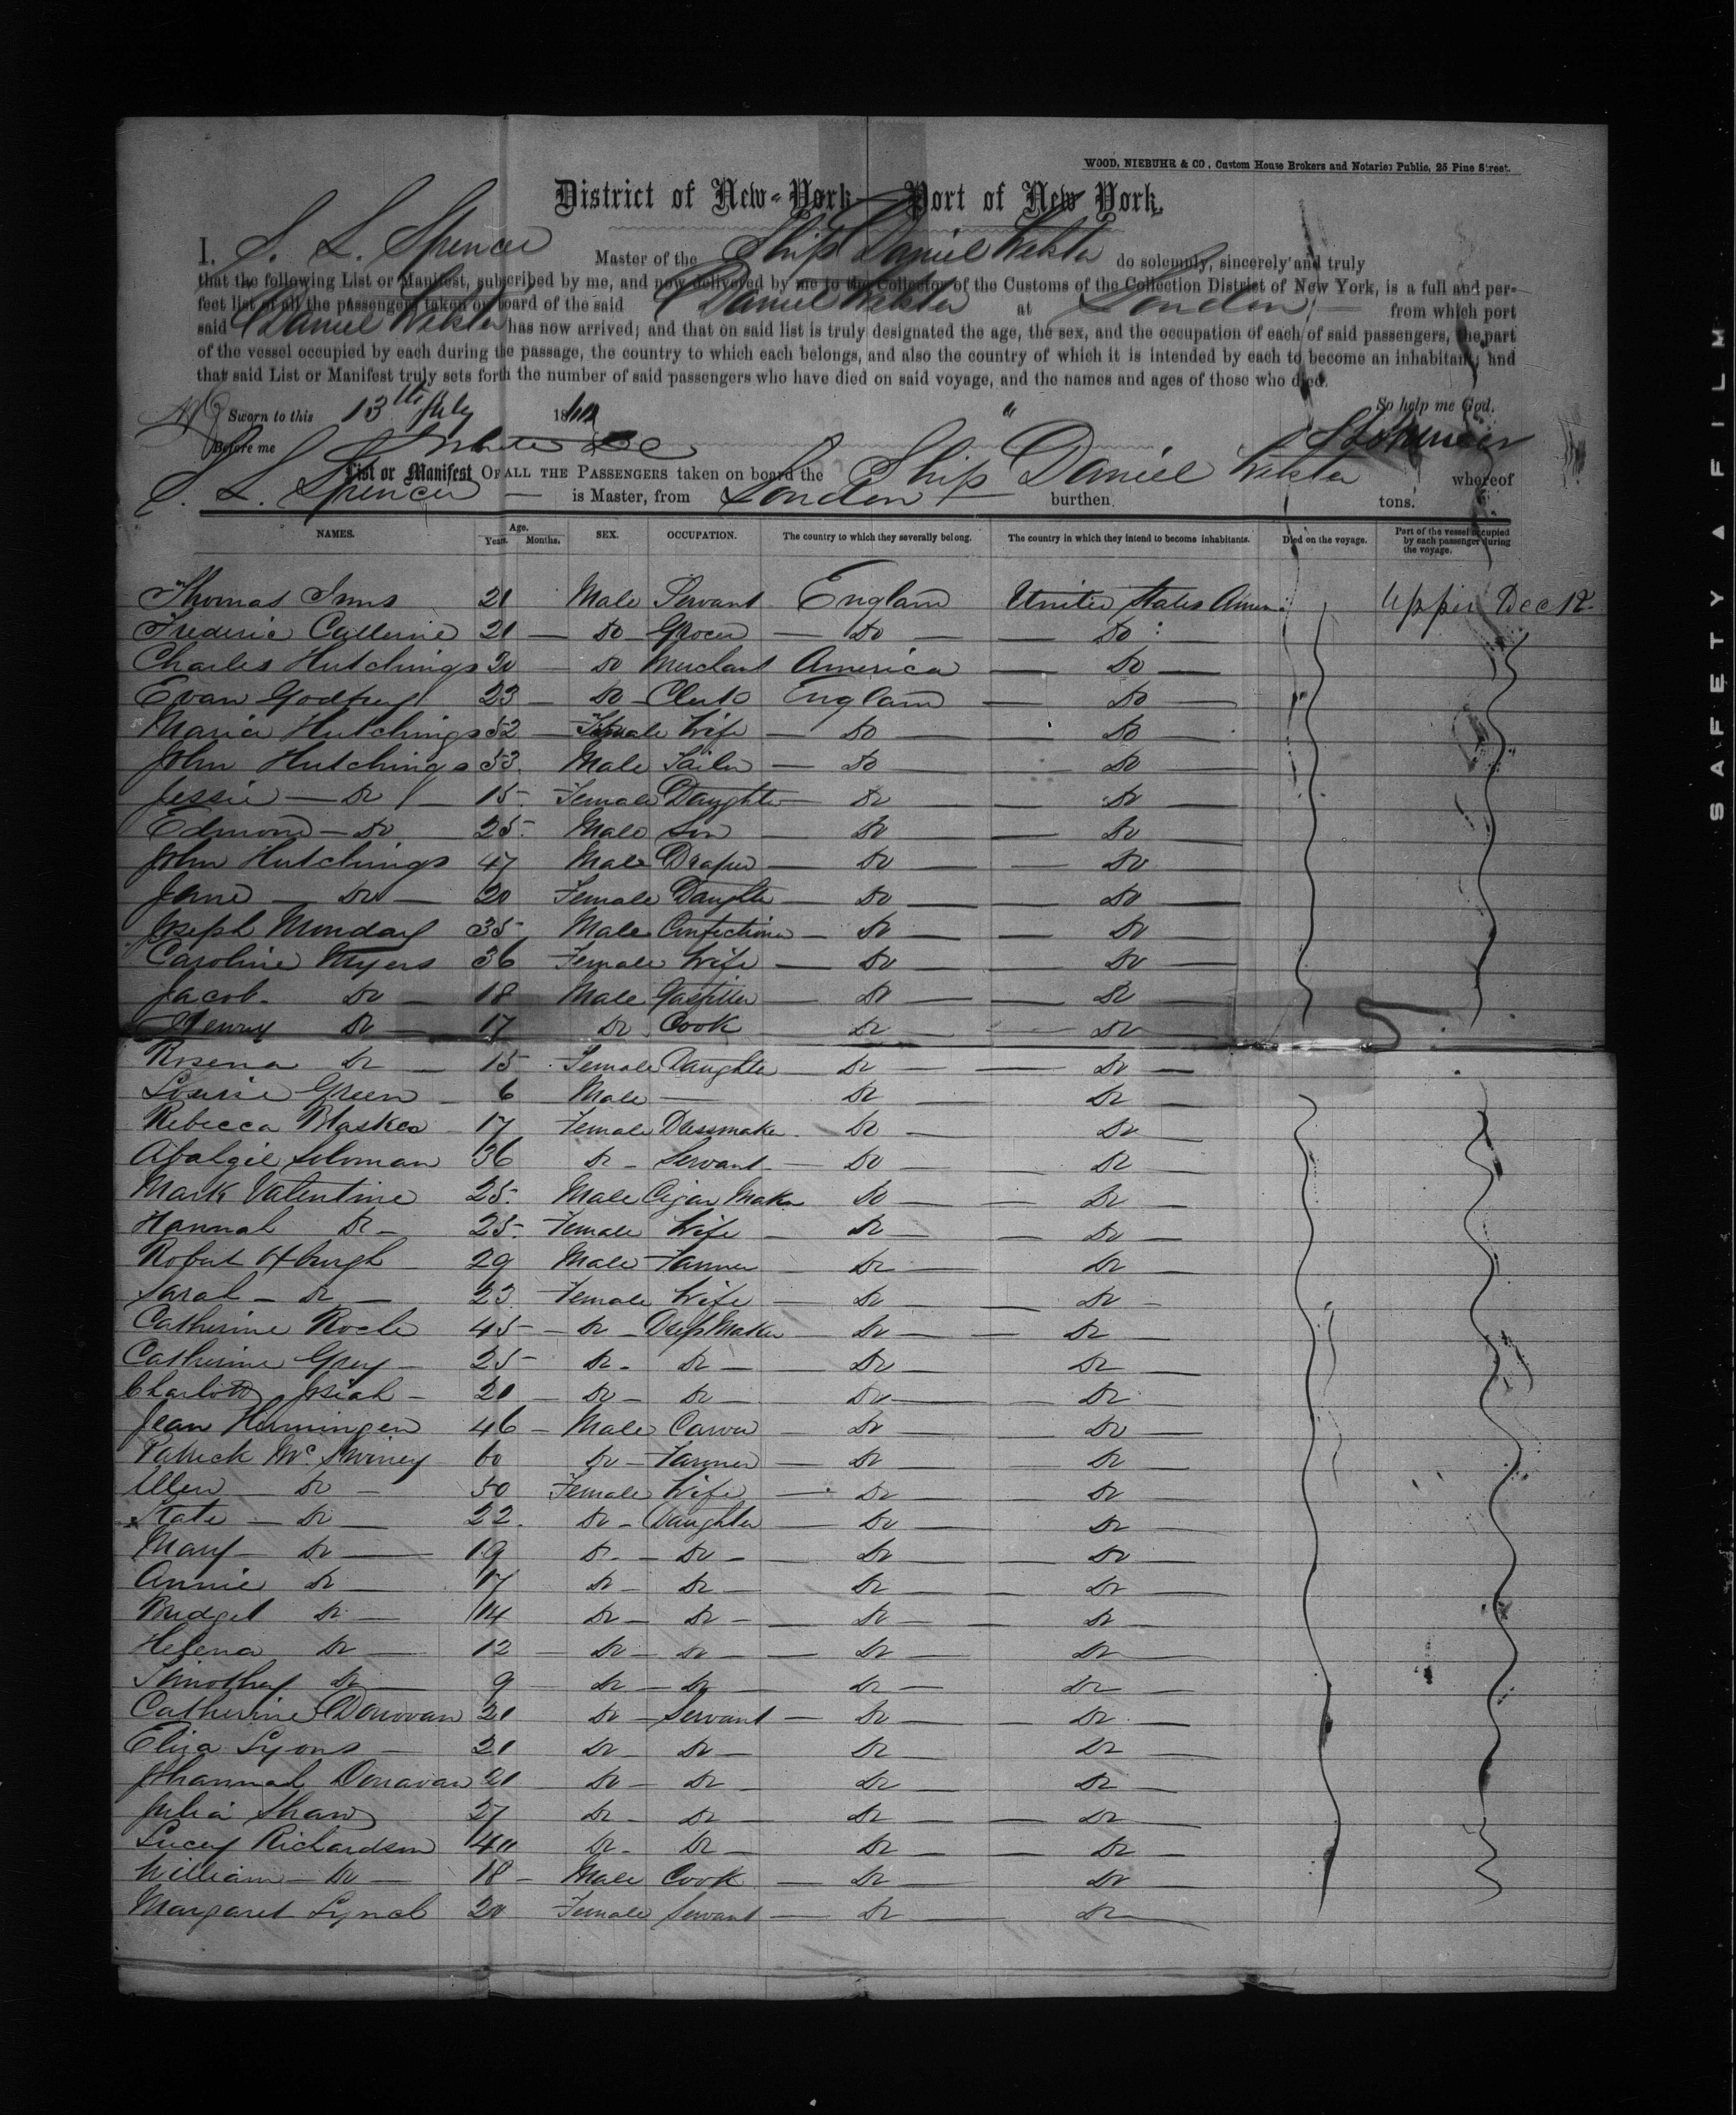 WOOD, NIEBUHR & CO, Custom House Brokers and Notaries Public, 25 Pine Street.
District of New-York — Port of New York.
I. S. L. Spencer Master of the Ship Daniel Webster do solemnly, sincerely and truly
that the following List or Manifest, subscribed by me, and now delivered by me to the Collector of the Customs of the Collection District of New York, is a full and per-
fect list of all the passengers taken on board of the said Daniel Webster at London from which port
said Daniel Webster has now arrived; and that on said list is truly designated the age, the sex, and the occupation of each of said passengers, the part
of the vessel occupied by each during the passage, the country to which each belongs, and also the country of which it is intended by each to become an inhabitant; and
that said List or Manifest truly sets forth the number of said passengers who have died on said voyage, and the names and ages of those who died.
So help me God.
Sworn to this 13th July 18
Before me
S L Spencer
List or Manifest OF ALL THE PASSENGERS taken on board the Ship Daniel Webster whereof
S. L. Spencer is Master, from London burthen tons.
NAMES. Age. Years. Months. SEX. OCCUPATION. The country to which they severally belong. The country in which they intend to become inhabitants. Died on the voyage. Part of the vessel occupied by each passenger during the voyage.
Thomas Inns 21 Male Servant England United States Amer. Upper Deck
Frederic 21 — Do Grocer — Do — Do
Charles Hutchings 20 — Do Merchant America — Do —
Evan Godfrey 23 — Do Clerk England — Do —
Maria Hutchings 52 — Female Wife — Do — Do
John Hutchings 53 Male Sailor — Do — Do
Jessie — Do 15 Female Daughter — Do — Do —
Edmond — Do 25 Male Son — Do — Do
John Hutchings 47 Male Draper — Do — Do
Jane — Do — 20 Female Daughter — Do — Do —
Joseph Munday 35 Male Confectioner — Do — Do
Caroline Myers 36 Female Wife — Do — Do
Jacob Do — 18 Male Gasfitter — Do — Do
Henry Do — 17 Do Cook Do — Do
Rosena Do — 15 Female Daughter — Do — Do —
Green — 6 Male — Do — Do —
Rebecca 17 Female Dressmaker Do — Do —
Soloman 36 Do — Servant — Do — Do
Mark Valentine 25 Male Cigar Maker Do — Do
Hannah Do — 25 Female Wife — Do — Do —
Robert 29 Male Farmer — Do — Do —
Sarah — Do — 23 Female Wife — Do — Do —
Catherine 45 — Do — Dress Maker — Do — Do —
Catherine Grey — 25 Do — Do — Do — Do —
Charlotte Josiah — 21 — Do — Do — Do — Do
Jean 46 — Male Carver — Do — Do —
Patrick McSwiney 60 Do — Farmer — Do — Do —
Ellen — Do — 50 Female Wife — Do — Do
Kate — Do — 22 Do — Daughter — Do — Do
Mary — Do — 19 Do — Do — Do — Do —
Annie Do — 17 Do — Do — Do — Do —
Bridget Do — 14 Do — Do — Do — Do
Helena Do — 12 — Do — Do — Do — Do —
Timothy Do — 9 — Do — Do — Do — Do —
Catherine Donovan 21 Do — Servant — Do — Do —
Eliza Lyons — 21 Do — Do — Do — Do —
Johannah Donavan 21 Do — Do — Do — Do —
Julia Shaw 27 Do — Do — Do — Do —
Lucey Richardson 40 Do — Do — Do — Do —
William — Do — 18 — Male Cook — Do — Do —
Margaret Lynch 20 Female Servant — Do — Do
SAFETY FILM